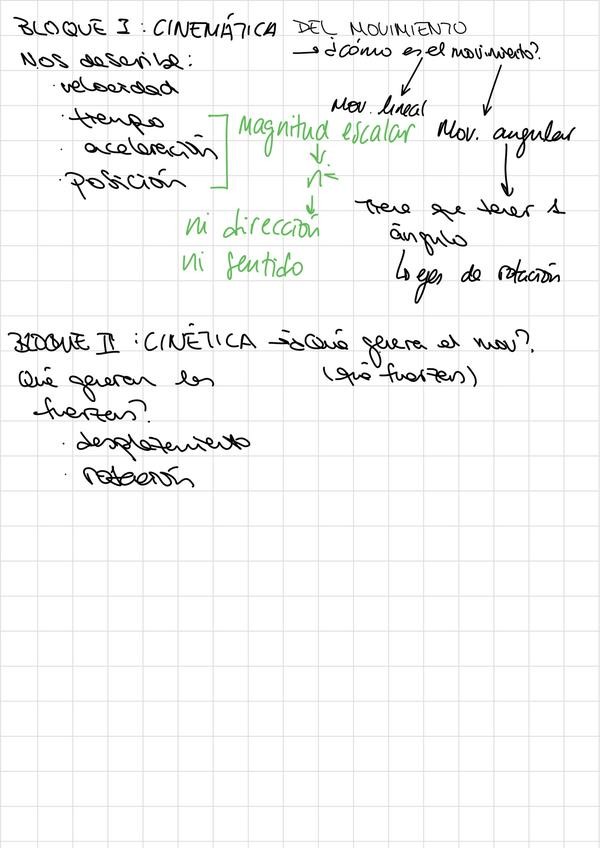 BLOQUE I : CINEMÁTICA DEL MOVIMIENTO
→ ¿cómo es el movimiento?
Nos describe:
· velocidad
· tiempo
· aceleración
· posición
Magnitud escalar
↓
nº
↓
ni dirección
ni sentido
Mov. lineal
Mov. angular
Tiene que tener 1
ángulo
↳ ejes de rotación
BLOQUE II : CINÉTICA → ¿Qué genera el mov?.
(qué fuerzas)
Qué generan las
fuerzas?
· desplazamiento
· rotación